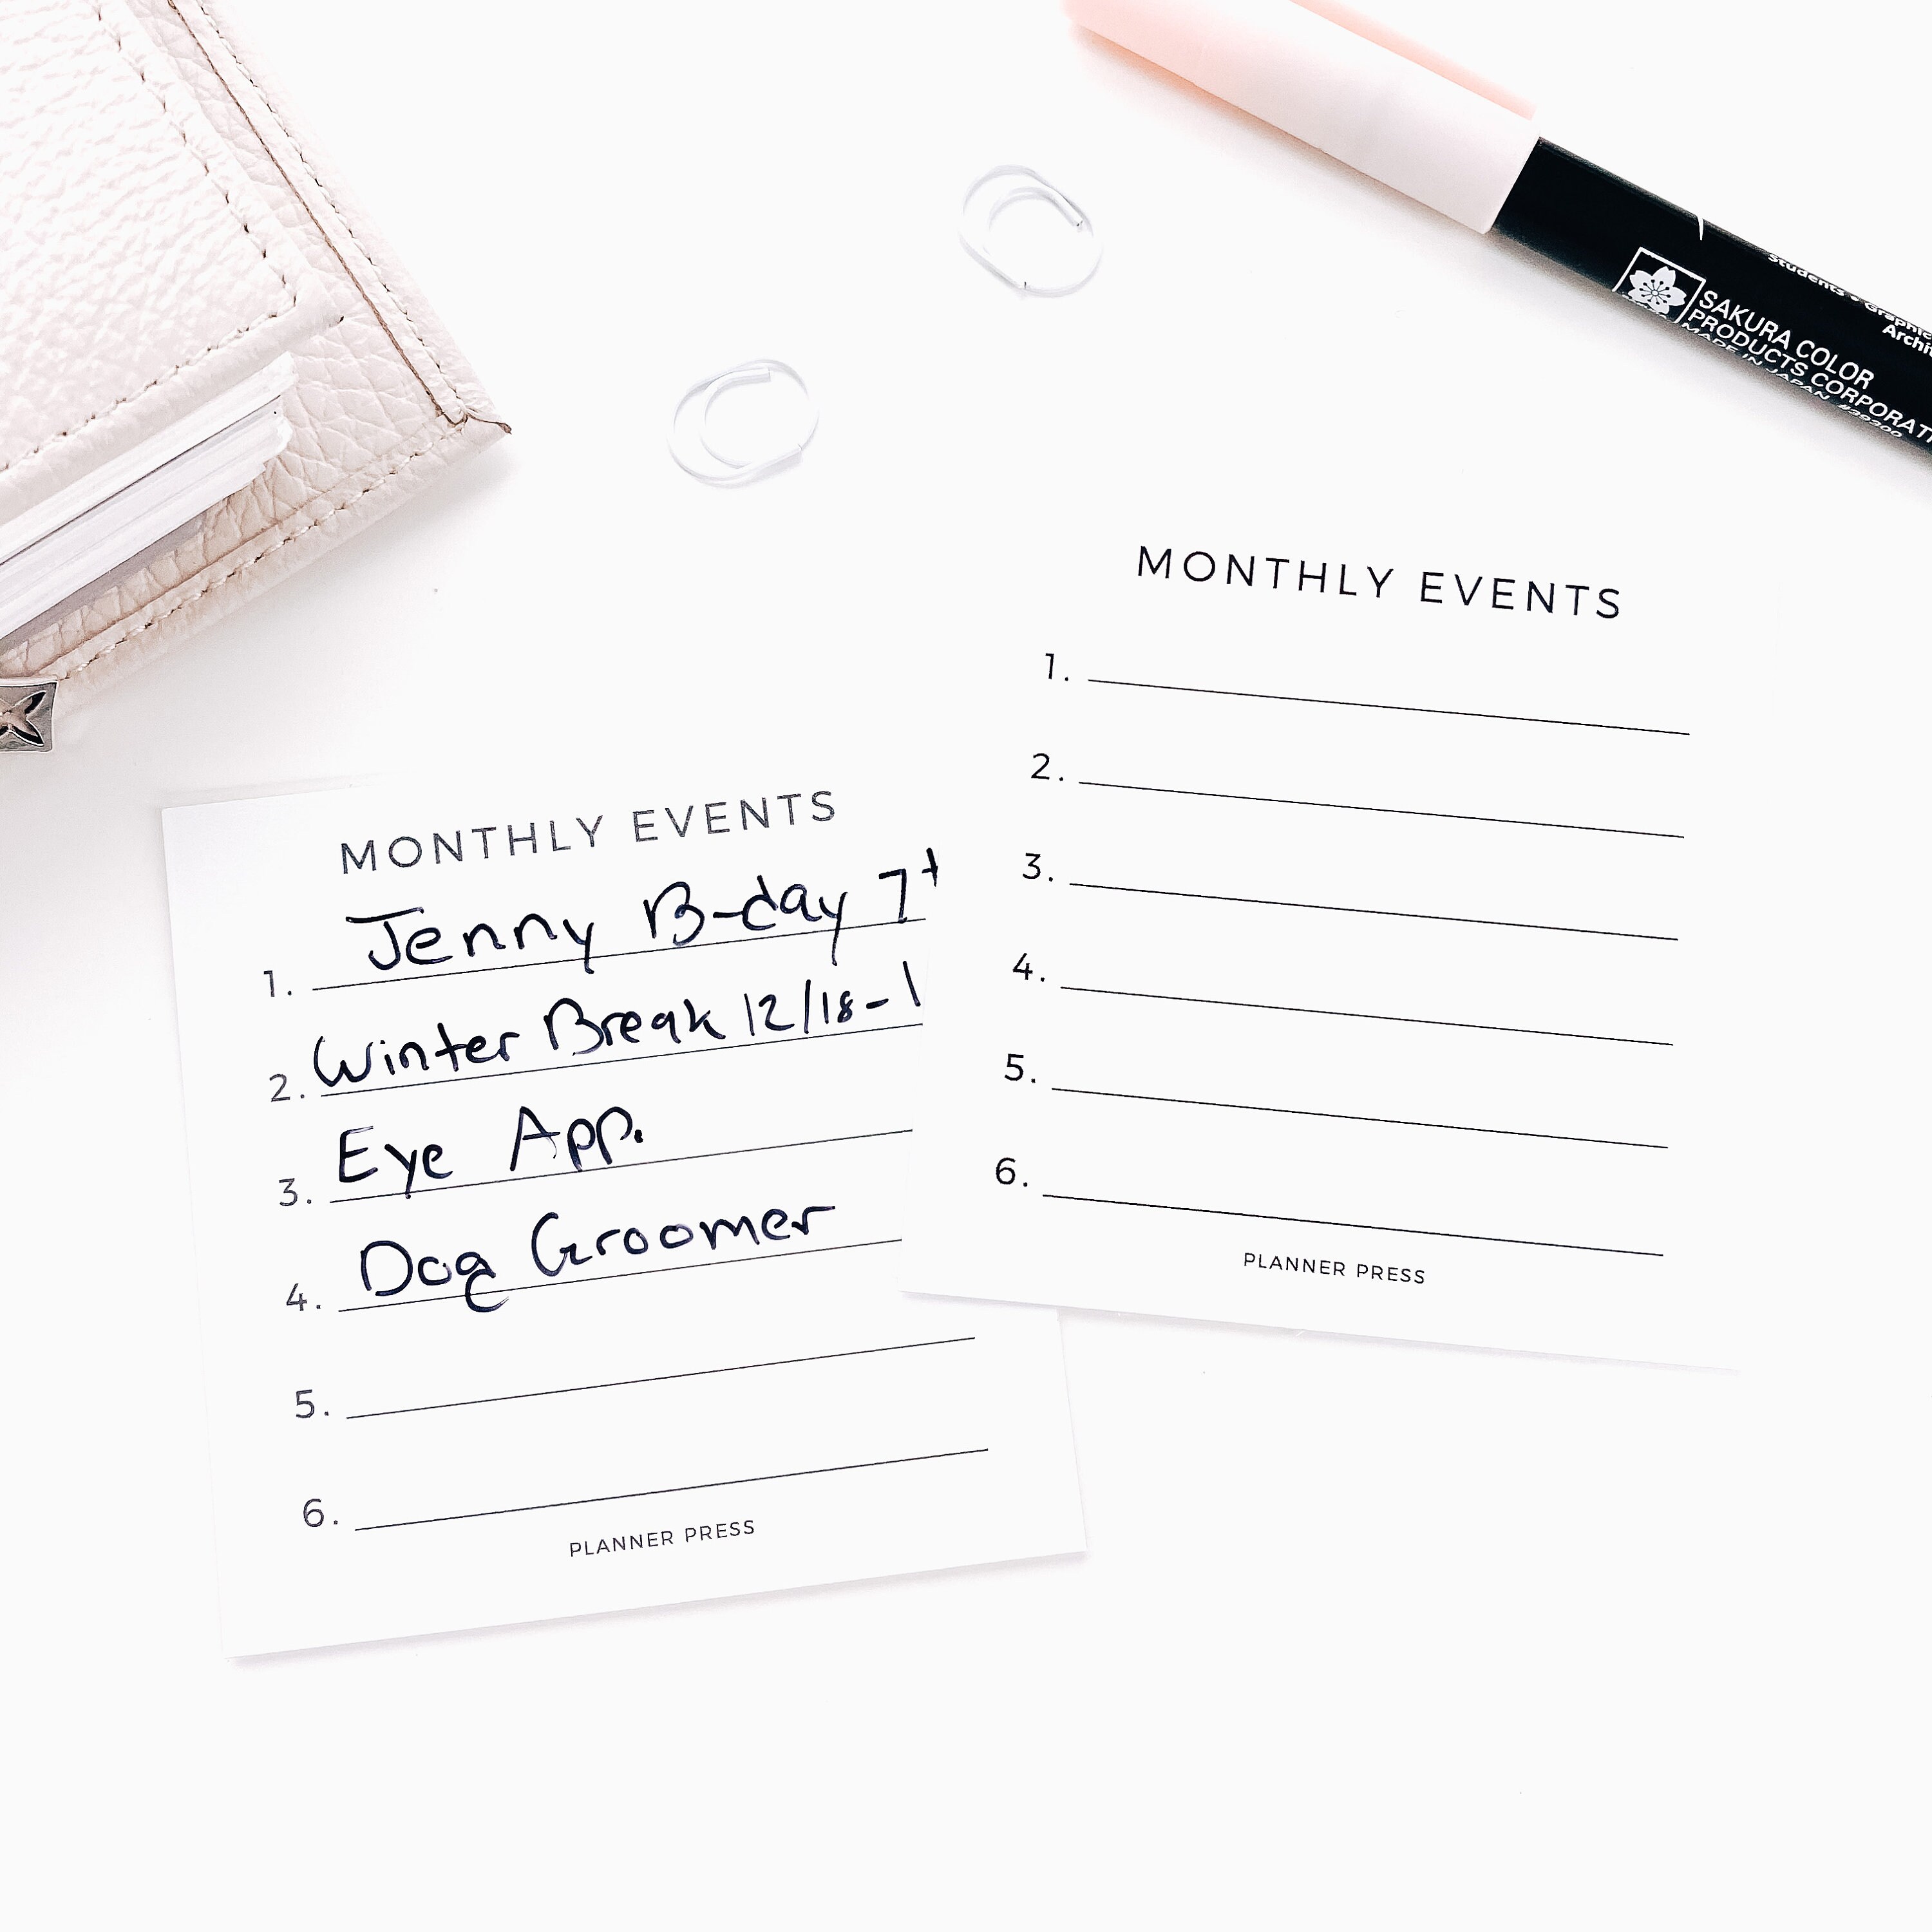 SAKURA COLOR
PRODUCTS CORPORAT
MADE IN JAPAN #29300
MONTHLY EVENTS
1.
2.
3.
4.
5.
6.
PLANNER PRESS
MONTHLY EVENTS
1. Jenny B-day 7t
2. Winter Break 12/18-1
3. Eye App.
4. Dog Groomer
5.
6.
PLANNER PRESS